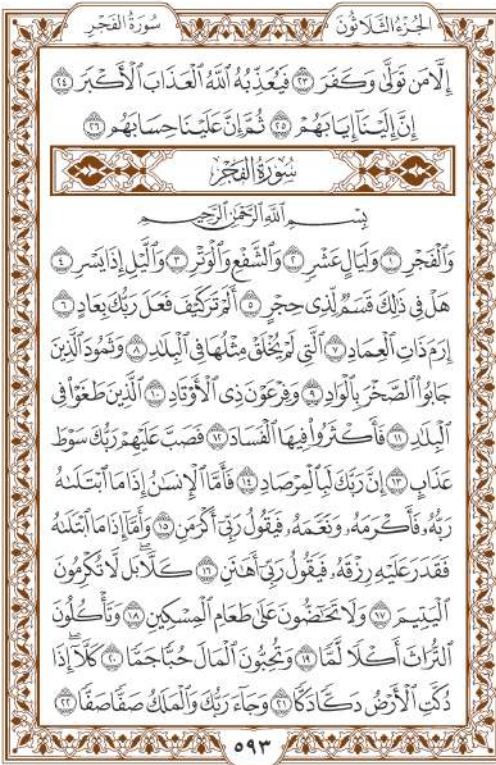 الجُزْءُ الثَّلَاثُونَ سُورَةُ الفَجْرِ
إِلَّا مَن تَوَلَّىٰ وَكَفَرَ ٢٣ فَيُعَذِّبُهُ ٱللَّهُ ٱلْعَذَابَ ٱلْأَكْبَرَ ٢٤
إِنَّ إِلَيْنَآ إِيَابَهُمْ ٢٥ ثُمَّ إِنَّ عَلَيْنَا حِسَابَهُم ٢٦
سُورَةُ الفَجْرِ
بِسْمِ ٱللَّهِ ٱلرَّحْمَٰنِ ٱلرَّحِيمِ
وَٱلْفَجْرِ ١ وَلَيَالٍ عَشْرٍ ٢ وَٱلشَّفْعِ وَٱلْوَتْرِ ٣ وَٱلَّيْلِ إِذَا يَسْرِ ٤
هَلْ فِي ذَٰلِكَ قَسَمٌ لِّذِي حِجْرٍ ٥ أَلَمْ تَرَ كَيْفَ فَعَلَ رَبُّكَ بِعَادٍ ٦
إِرَمَ ذَاتِ ٱلْعِمَادِ ٧ ٱلَّتِي لَمْ يُخْلَقْ مِثْلُهَا فِي ٱلْبِلَٰدِ ٨ وَثَمُودَ ٱلَّذِينَ
جَابُوا۟ ٱلصَّخْرَ بِٱلْوَادِ ٩ وَفِرْعَوْنَ ذِي ٱلْأَوْتَادِ ١٠ ٱلَّذِينَ طَغَوْا۟ فِي
ٱلْبِلَٰدِ ١١ فَأَكْثَرُوا۟ فِيهَا ٱلْفَسَادَ ١٢ فَصَبَّ عَلَيْهِمْ رَبُّكَ سَوْطَ
عَذَابٍ ١٣ إِنَّ رَبَّكَ لَبِٱلْمِرْصَادِ ١٤ فَأَمَّا ٱلْإِنسَٰنُ إِذَا مَا ٱبْتَلَىٰهُ
رَبُّهُۥ فَأَكْرَمَهُۥ وَنَعَّمَهُۥ فَيَقُولُ رَبِّيٓ أَكْرَمَنِ ١٥ وَأَمَّآ إِذَا مَا ٱبْتَلَىٰهُ
فَقَدَرَ عَلَيْهِ رِزْقَهُۥ فَيَقُولُ رَبِّيٓ أَهَٰنَنِ ١٦ كَلَّا ۖ بَل لَّا تُكْرِمُونَ
ٱلْيَتِيمَ ١٧ وَلَا تَحَٰٓضُّونَ عَلَىٰ طَعَامِ ٱلْمِسْكِينِ ١٨ وَتَأْكُلُونَ
ٱلتُّرَاثَ أَكْلًا لَّمًّا ١٩ وَتُحِبُّونَ ٱلْمَالَ حُبًّا جَمًّا ٢٠ كَلَّآ ۖ إِذَا
دُكَّتِ ٱلْأَرْضُ دَكًّا دَكًّا ٢١ وَجَآءَ رَبُّكَ وَٱلْمَلَكُ صَفًّا صَفًّا ٢٢
٥٩٣